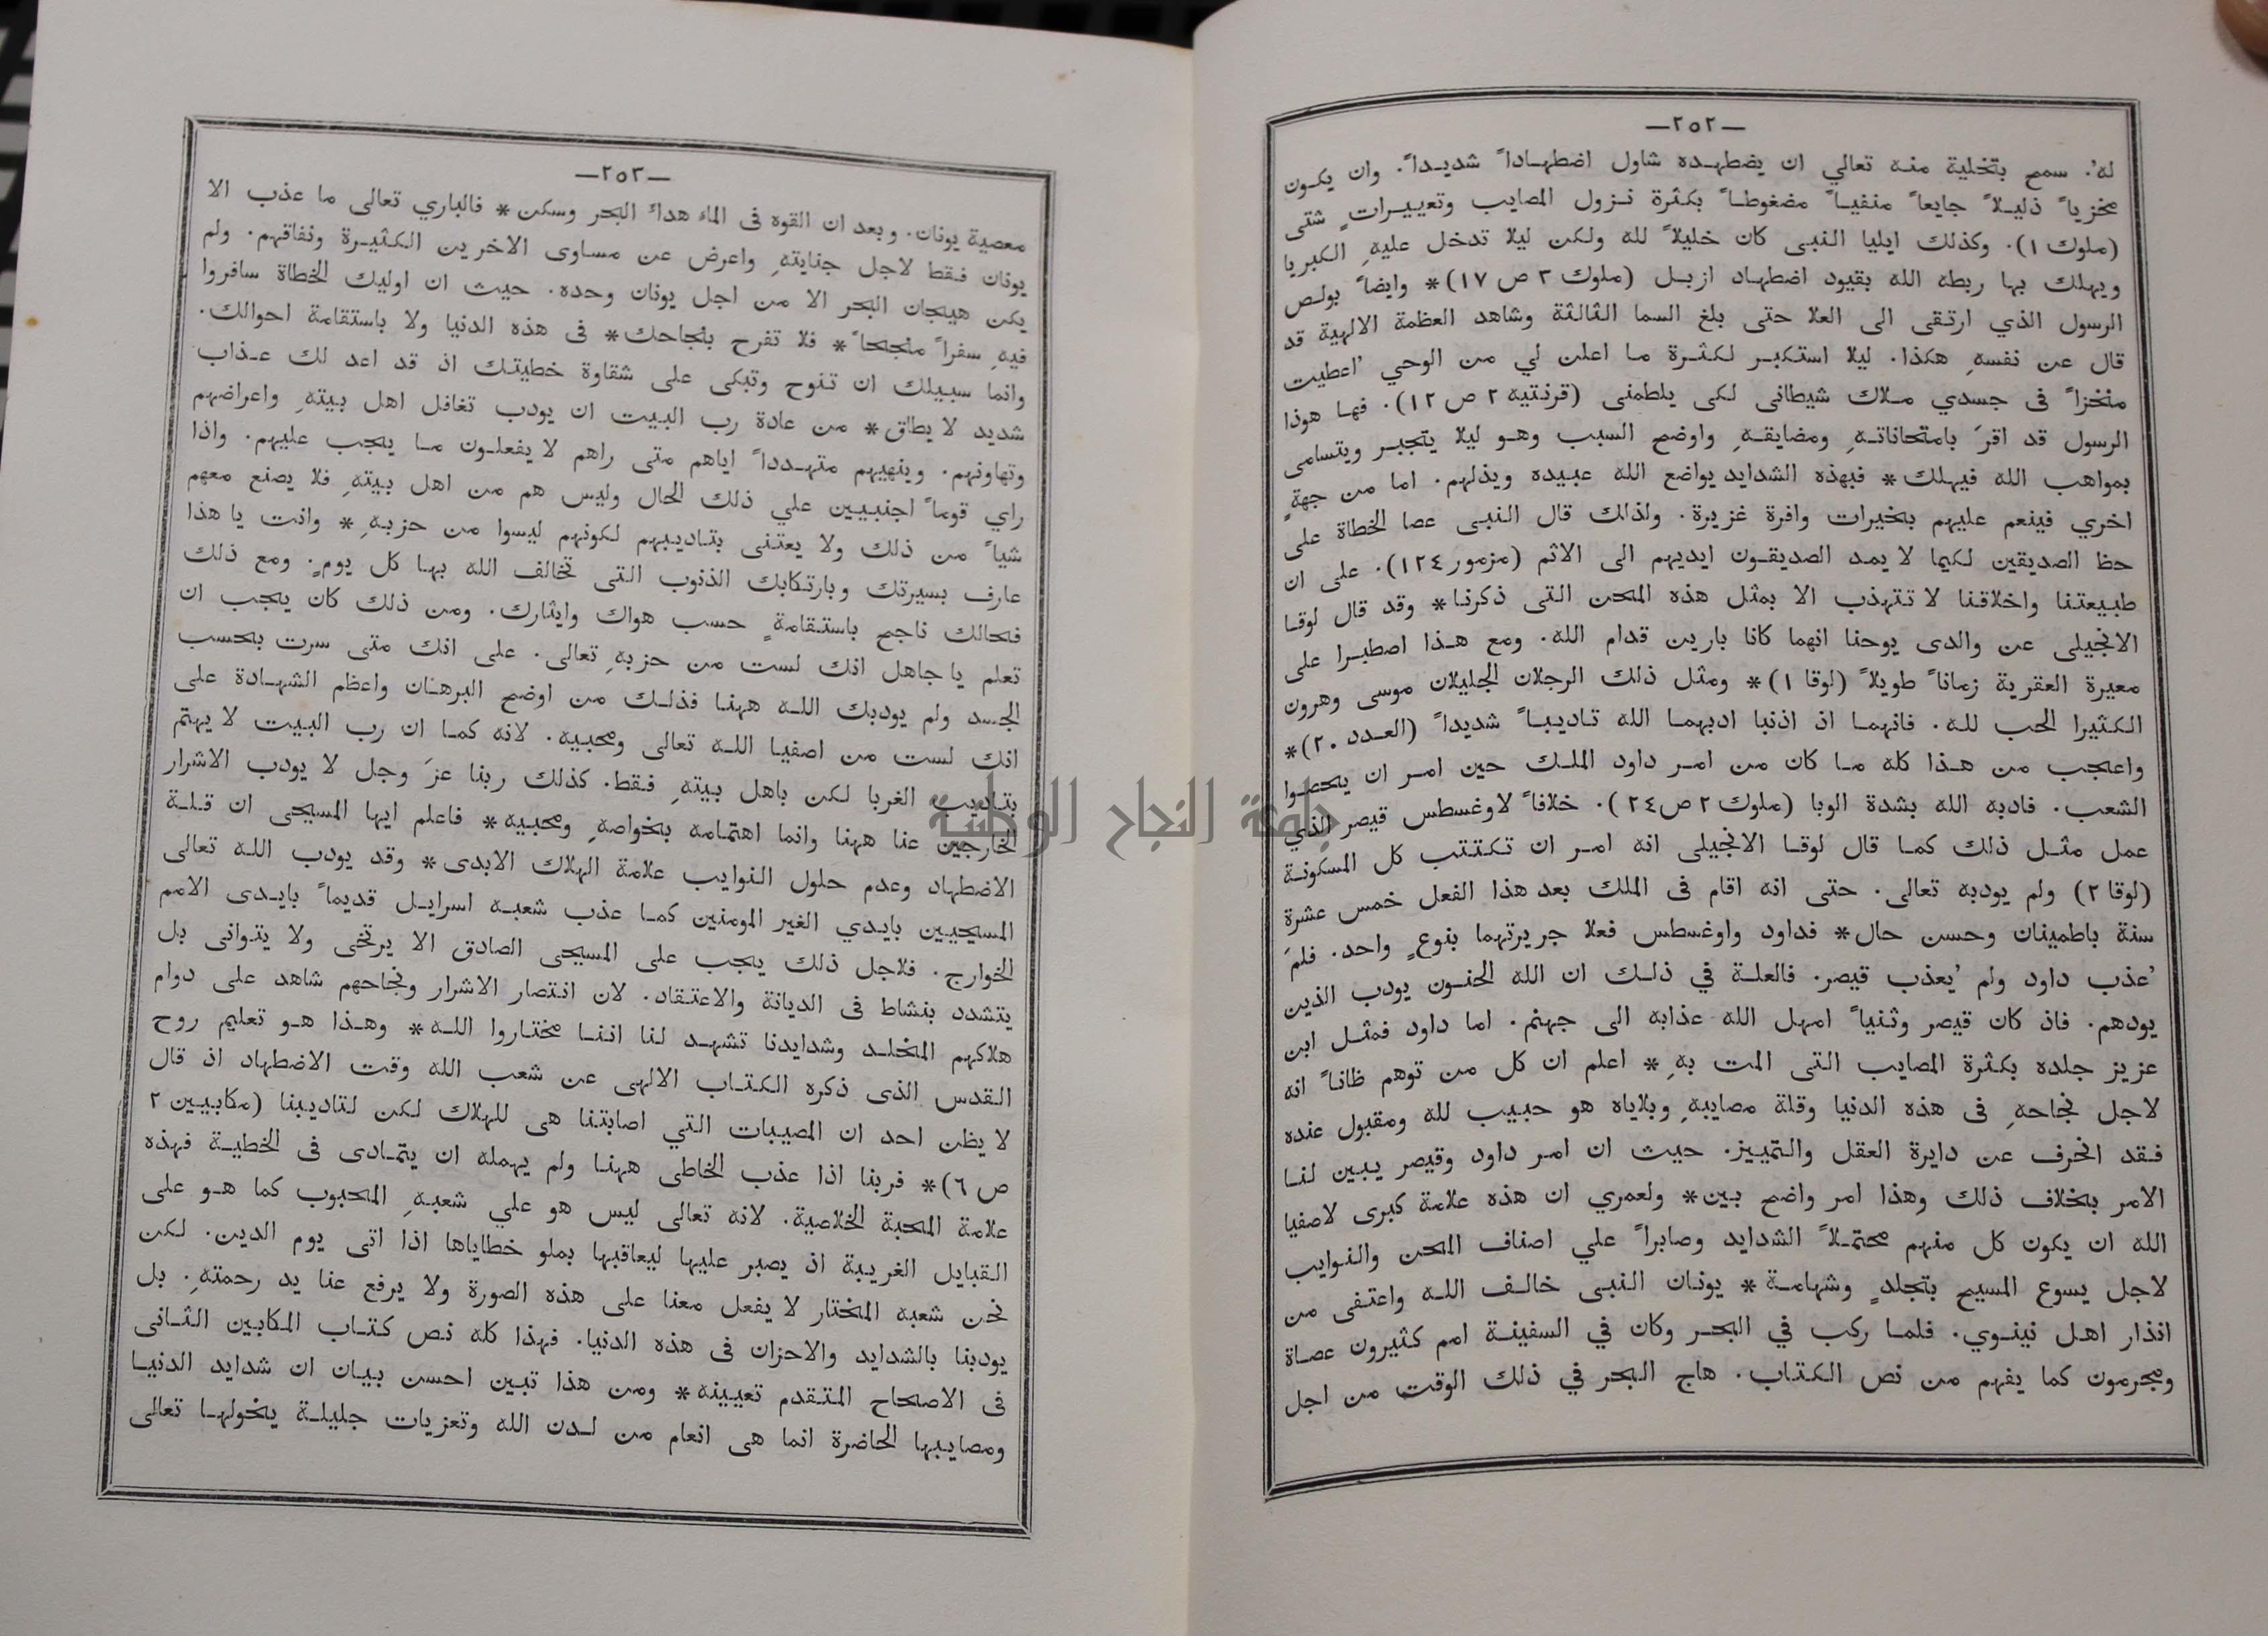 —٢٥٢—
له'. سمح بتخلية منه تعالي ان يضطهده شاول اضطهاداً شديداً. وان يكون
مخزياً ذليلاً جايعاً منفياً مضغوطاً بكثرة نزول المصايب وتعييرات شتى
(ملوك ١). وكذلك ايليا النبى كان خليلاً لله ولكن ليلا تدخل عليهِ الكبريا
ويهلك بها ربطه الله بقيود اضطهاد ازبل (ملوك ٣ ص ١٧)* وايضاً بولص
الرسول الذي ارتقى الى العلا حتى بلغ السما الثالثة وشاهد العظمة الالهية قد
قال عن نفسهِ هكذا. ليلا استكبر لكثرة ما اعلن لي من الوحي 'اعطيت
منخزاً فى جسدي ملاك شيطانى لكى يلطمنى (قرنتيه ٢ ص ١٢). فها هوذا
الرسول قد اقرَ بامتحاناتهِ ومضايقهِ واوضح السبب وهو ليلا يتجبر ويتسامى
بمواهب الله فيهلك* فبهذه الشدايد يواضع الله عبيده ويذلهم. اما من جهةٍ
اخري فينعم عليهم بخيرات وافرة غزيرة. ولذلك قال النبى عصا الخطاة على
حظ الصديقين لكيما لا يمد الصديقون ايديهم الى الاثم (مزمور ١٢٤). على ان
طبيعتنا واخلاقنا لا تتهذب الا بمثل هذه المحن التى ذكرنا* وقد قال لوقا
الانجيلى عن والدى يوحنا انهما كانا بارين قدام الله. ومع هذا اصطبرا على
معيرة العقرية زماناً طويلاً (لوقا ١)* ومثل ذلك الرجلان الجليلان موسى وهرون
الكثيرا الحب لله. فانهما اذ اذنبا ادبهما الله تاديباً شديداً (العدد ٢٠)*
واعجب من هذا كله ما كان من امر داود الملك حين امر ان يحصوا
الشعب. فادبه الله بشدة الوبا (ملوك ٢ ص ٢٤). خلافاً لاوغسطس قيصر الذي
عمل مثل ذلك كما قال لوقا الانجيلى انه امر ان تكتتب كل المسكونة
(لوقا ٢) ولم يودبه تعالى. حتى انه اقام فى الملك بعد هذا الفعل خمس عشرة
سنة باطمينان وحسن حال* فداود واوغسطس فعلا جريرتهما بنوعٍ واحد. فلمَ
'عذب داود ولم 'يعذب قيصر. فالعلة في ذلك ان الله الحنون يودب الذين
يودهم. فاذ كان قيصر وثنياً امهل الله عذابه الى جهنم. اما داود فمثل ابن
عزيز جلده بكثرة المصايب التى المت بهِ* اعلم ان كل من توهم ظاناً انه
لاجل نجاحهِ فى هذه الدنيا وقلة مصايبهِ وبلاياه هو حبيب لله ومقبول عنده
فقد انحرف عن دايرة العقل والتمييز. حيث ان امر داود وقيصر يبين لنا
الامر بخلاف ذلك وهذا امر واضح بين* ولعمري ان هذه علامة كبرى لاصفيا
الله ان يكون كل منهم محتملاً الشدايد وصابراً علي اصناف المحن والنوايب
لاجل يسوع المسيح بتجلدٍ وشهامة* يونان النبى خالف الله واعتفى من
انذار اهل نينوي. فلما ركب في البحر وكان في السفينة امم كثيرون عصاة
ومجرمون كما يفهم من نص الكتاب. هاج البحر في ذلك الوقت من اجل
—٢٥٣—
معصية يونان. وبعد ان القوه فى الماء هداء البحر وسكن* فالباري تعالى ما عذب الا
يونان فقط لاجل جنايتهِ واعرض عن مساوى الاخرين الكثيرة ونفاقهم. ولم
يكن هيجان البحر الا من اجل يونان وحده. حيث ان اوليك الخطاة سافروا
فيهِ سفراً منجحاً* فلا تفرح بنجاحك* فى هذه الدنيا ولا باستقامة احوالك.
وانما سبيلك ان تنوح وتبكى على شقاوة خطيتك اذ قد اعد لك عذاب
شديد لا يطاق* من عادة رب البيت ان يودب تغافل اهل بيتهِ واعراضهم
وتهاونهم. وينهيهم متهدداً اياهم متى راهم لا يفعلون ما يجب عليهم. واذا
راي قوماً اجنبيين علي ذلك الحال وليس هم من اهل بيتهِ فلا يصنع معهم
شياً من ذلك ولا يعتنى بتاديبهم لكونهم ليسوا من حزبهِ* وانت يا هذا
عارف بسيرتك وبارتكابك الذنوب التى تخالف الله بها كل يومٍ. ومع ذلك
فحالك ناجح باستقامةٍ حسب هواك وايثارك. ومن ذلك كان يجب ان
تعلم يا جاهل انك لست من حزبهِ تعالى. على انك متى سرت بحسب
الجسد ولم يودبك الله ههنا فذلك من اوضح البرهان واعظم الشهادة على
انك لست من اصفيا الله تعالى ومحبيه. لانه كما ان رب البيت لا يهتم
بتاديب الغربا لكن باهل بيتهِ فقط. كذلك ربنا عزَ وجل لا يودب الاشرار
الخارجين عنا ههنا وانما اهتمامه بخواصهِ ومحبيه* فاعلم ايها المسيحى ان قلة
الاضطهاد وعدم حلول النوايب علامة الهلاك الابدى* وقد يودب الله تعالى
المسيحيين بايدي الغير المومنين كما عذب شعبه اسرايل قديماً بايدى الامم
الخوارج. فلاجل ذلك يجب على المسيحى الصادق الا يرتخى ولا يتوانى بل
يتشدد بنشاط فى الديانة والاعتقاد. لان انتصار الاشرار ونجاحهم شاهد على دوام
هلاكهم المخلد وشدايدنا تشهد لنا اننا مختاروا الله* وهذا هو تعليم روح
القدس الذى ذكره الكتاب الالهى عن شعب الله وقت الاضطهاد اذ قال
لا يظن احد ان المصيبات التي اصابتنا هى للهلاك لكن لتاديبنا (مكابيين ٢
ص ٦)* فربنا اذا عذب الخاطى ههنا ولم يهمله ان يتمادى فى الخطية فهذه
علامة المحبة الخلاصية. لانه تعالى ليس هو علي شعبهِ المحبوب كما هو على
القبايل الغريبة اذ يصبر عليها ليعاقبها بملو خطاياها اذا اتى يوم الدين. لكن
نحن شعبه المختار لا يفعل معنا على هذه الصورة ولا يرفع عنا يد رحمتهِ. بل
يودبنا بالشدايد والاحزان فى هذه الدنيا. فهذا كله نص كتاب المكابين الثانى
فى الاصحاح المتقدم تعيينه* ومن هذا تبين احسن بيان ان شدايد الدنيا
ومصايبها الحاضرة انما هى انعام من لدن الله وتعزيات جليلة يخولها تعالى
جامعة النجاح الوطنية